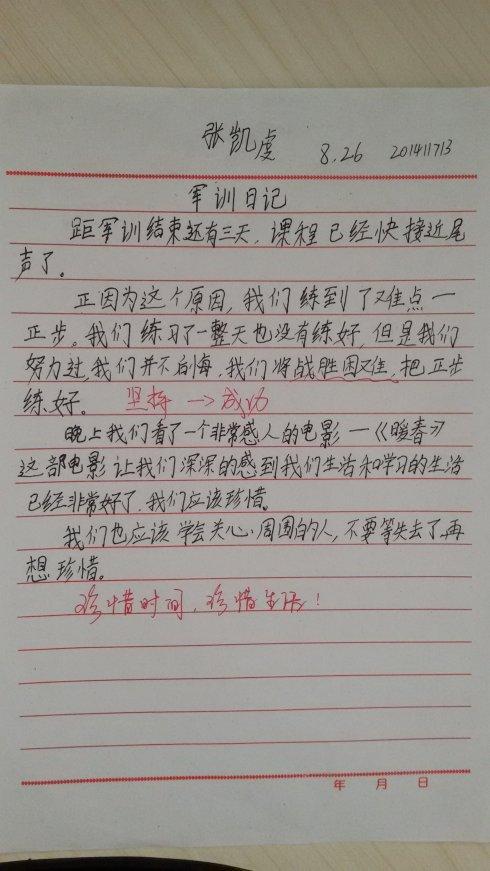 张凯虔 8.26 201411713
军训日记
距军训结束还有三天，课程已经快接近尾
声了。
正因为这个原因，我们练到了难点一
正步。我们练习了一整天也没有练好，但是我们
努力过，我们并不后悔，我们将战胜困难，把正步
练好。 坚持 → 成功
晚上我们看了一个非常感人的电影—《暖春》
这部电影让我们深深的感到我们生活和学习的生活
已经非常好了，我们应该珍惜。
我们也应该学会关心周围的人，不要等失去了再
想珍惜。
珍惜时间，珍惜生活！
年 月 日